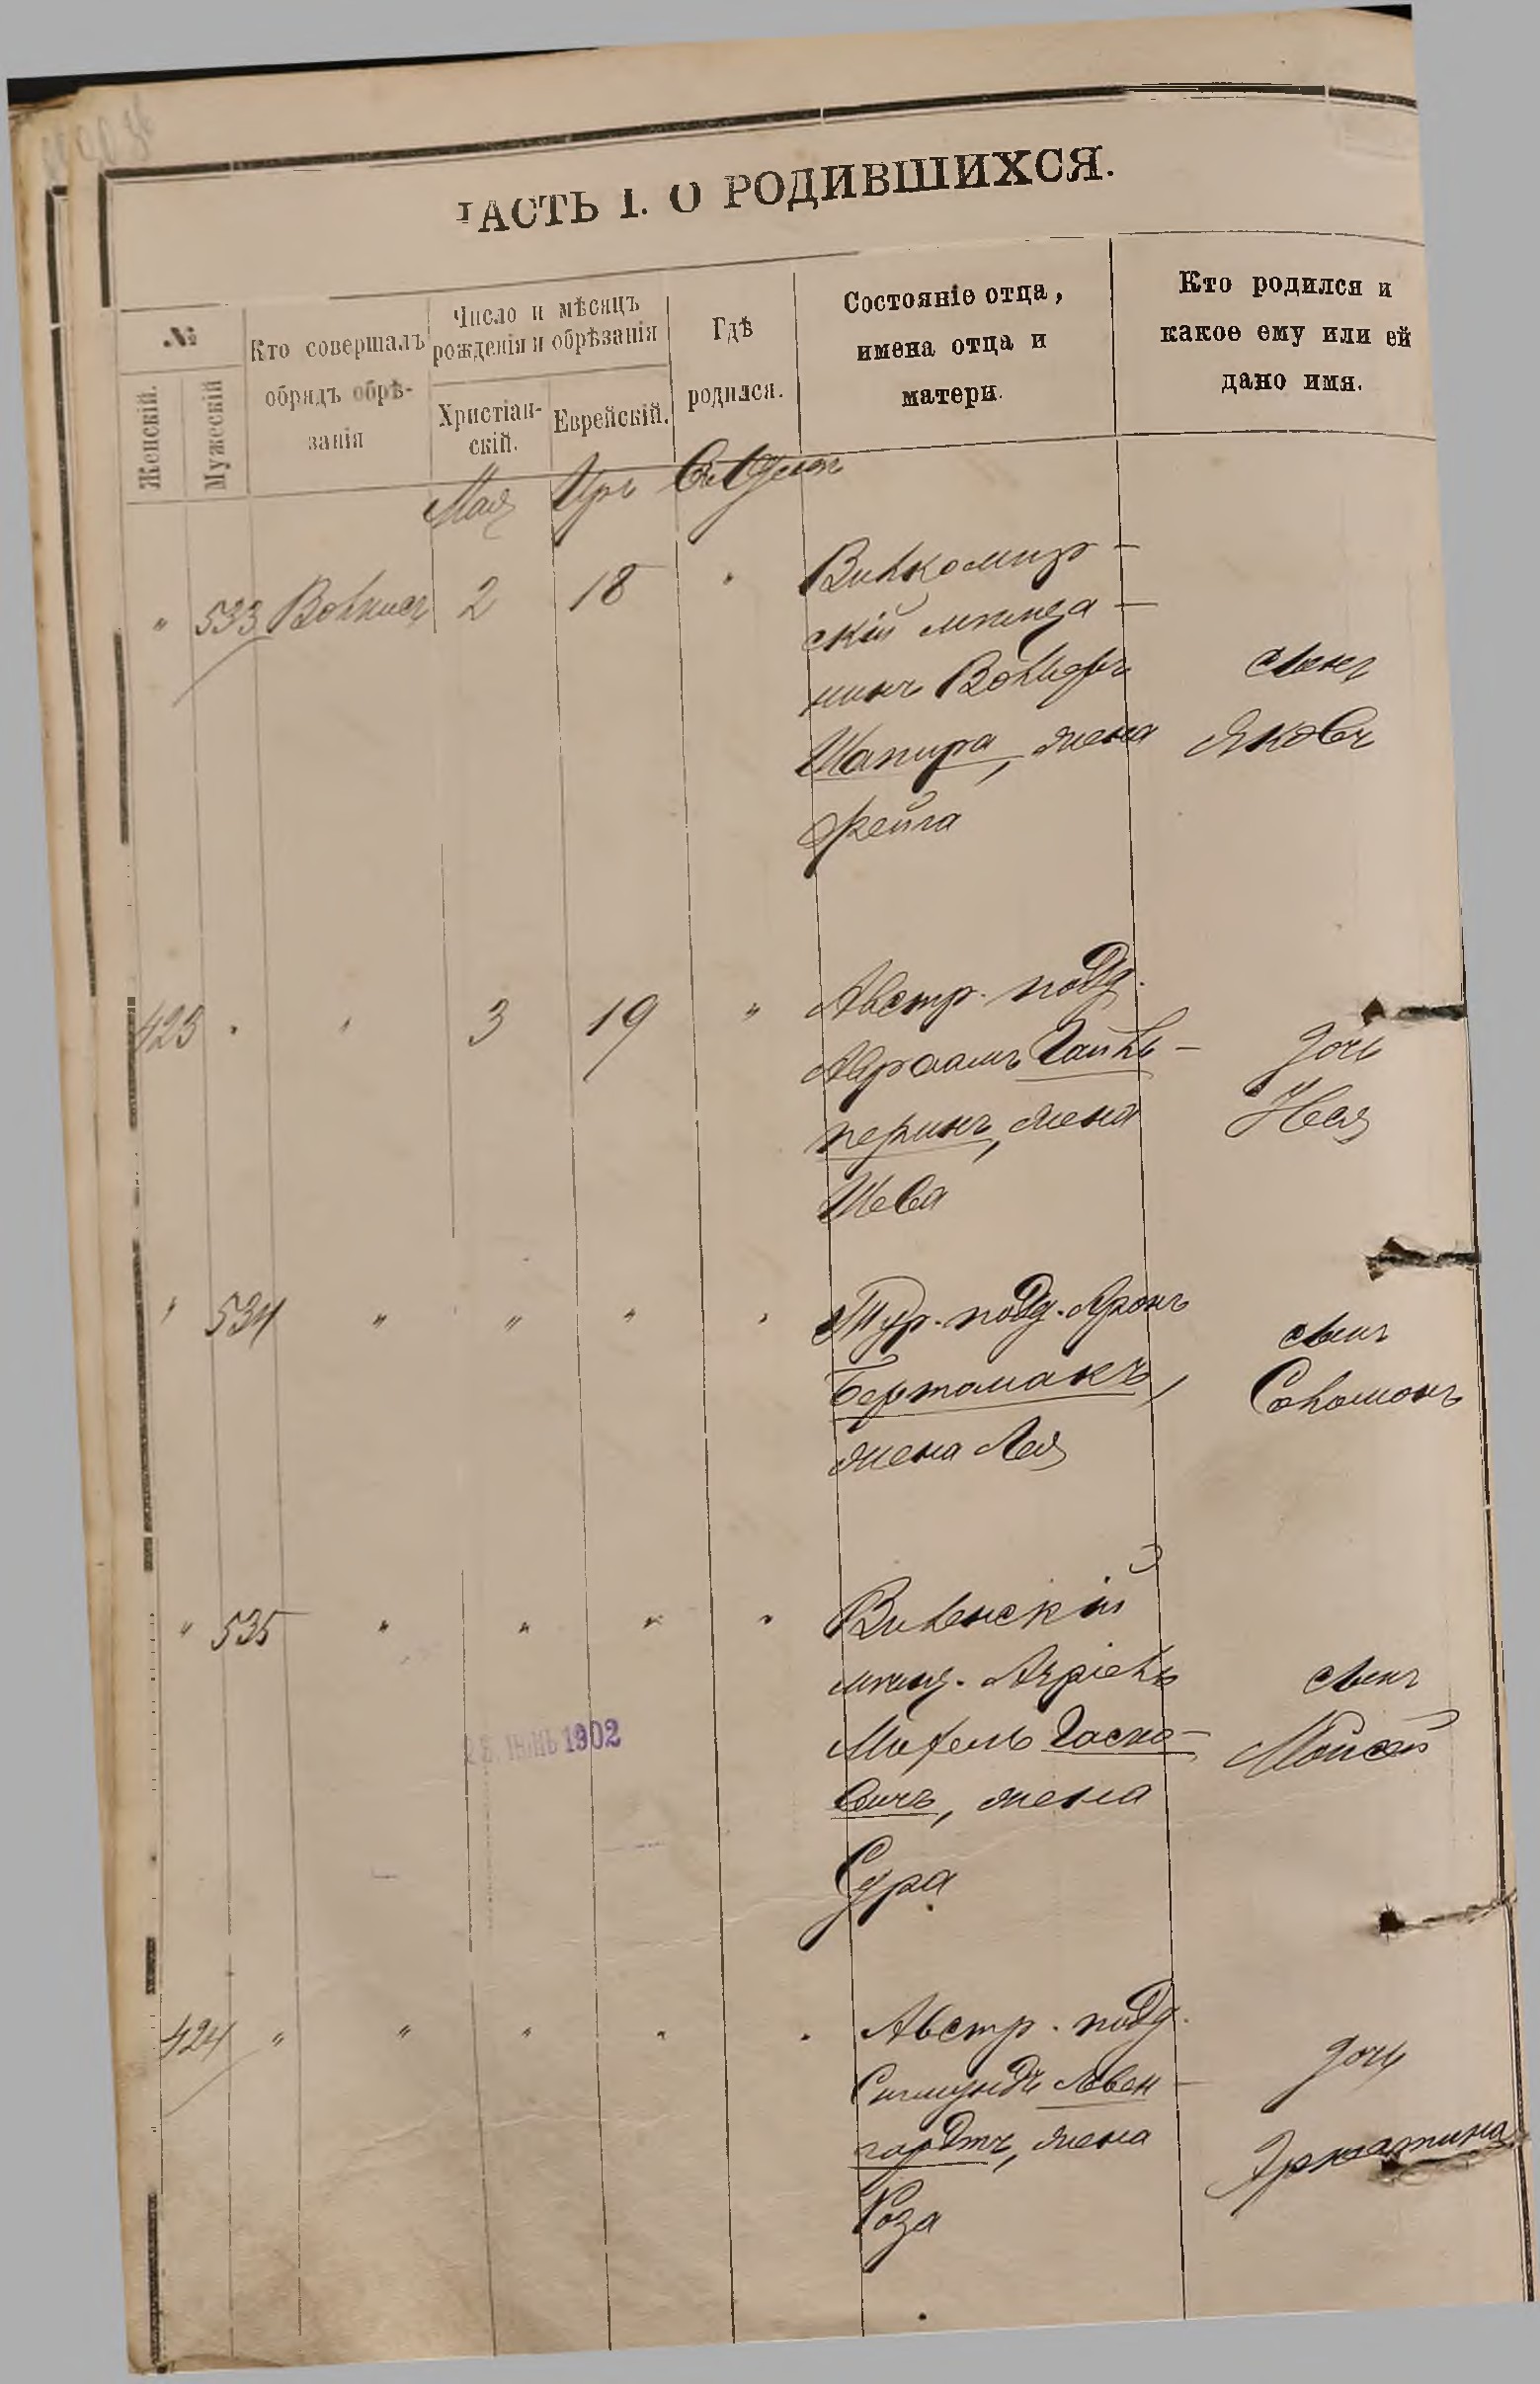 ЧАСТЬ I. О РОДИВШИХСЯ.
№
Женскій.
Мужескій
Кто совершалъ
обрядъ обрѣ-
занія
Число и мѣсяцъ
рожденія и обрѣзанія
Христіан-
скій.
Еврейскій.
Гдѣ
родился.
Состояніе отца,
имена отца и
матери.
Кто родился и
какое ему или ей
дано имя.
Мая Иръ Въ Одессѣ
" 533 2 18 "
Вилкомир-
скій мѣща-
нинъ Вольфъ
Шапира, жена
Фейга
сынъ
Яковъ
423 " " 3 19 "
Австр. подд.
Абраамъ Гальь-
перинъ, жена
Шева
дочь
Нехя
" 534 " " " "
Тур. подд. Аронъ
Бертомакъ,
жена Лея
сынъ
Соломонъ
" 535 " " " "
Виленскій
мѣщ. Азріель
Михель Гасно-
вичъ, жена
Сура
сынъ
Мойсей
ІЮНЬ 1902
424 " " " " "
Австр. подд.
Сигмундъ Ловен-
гардтъ, жена
Роза
дочь
Эрнстина